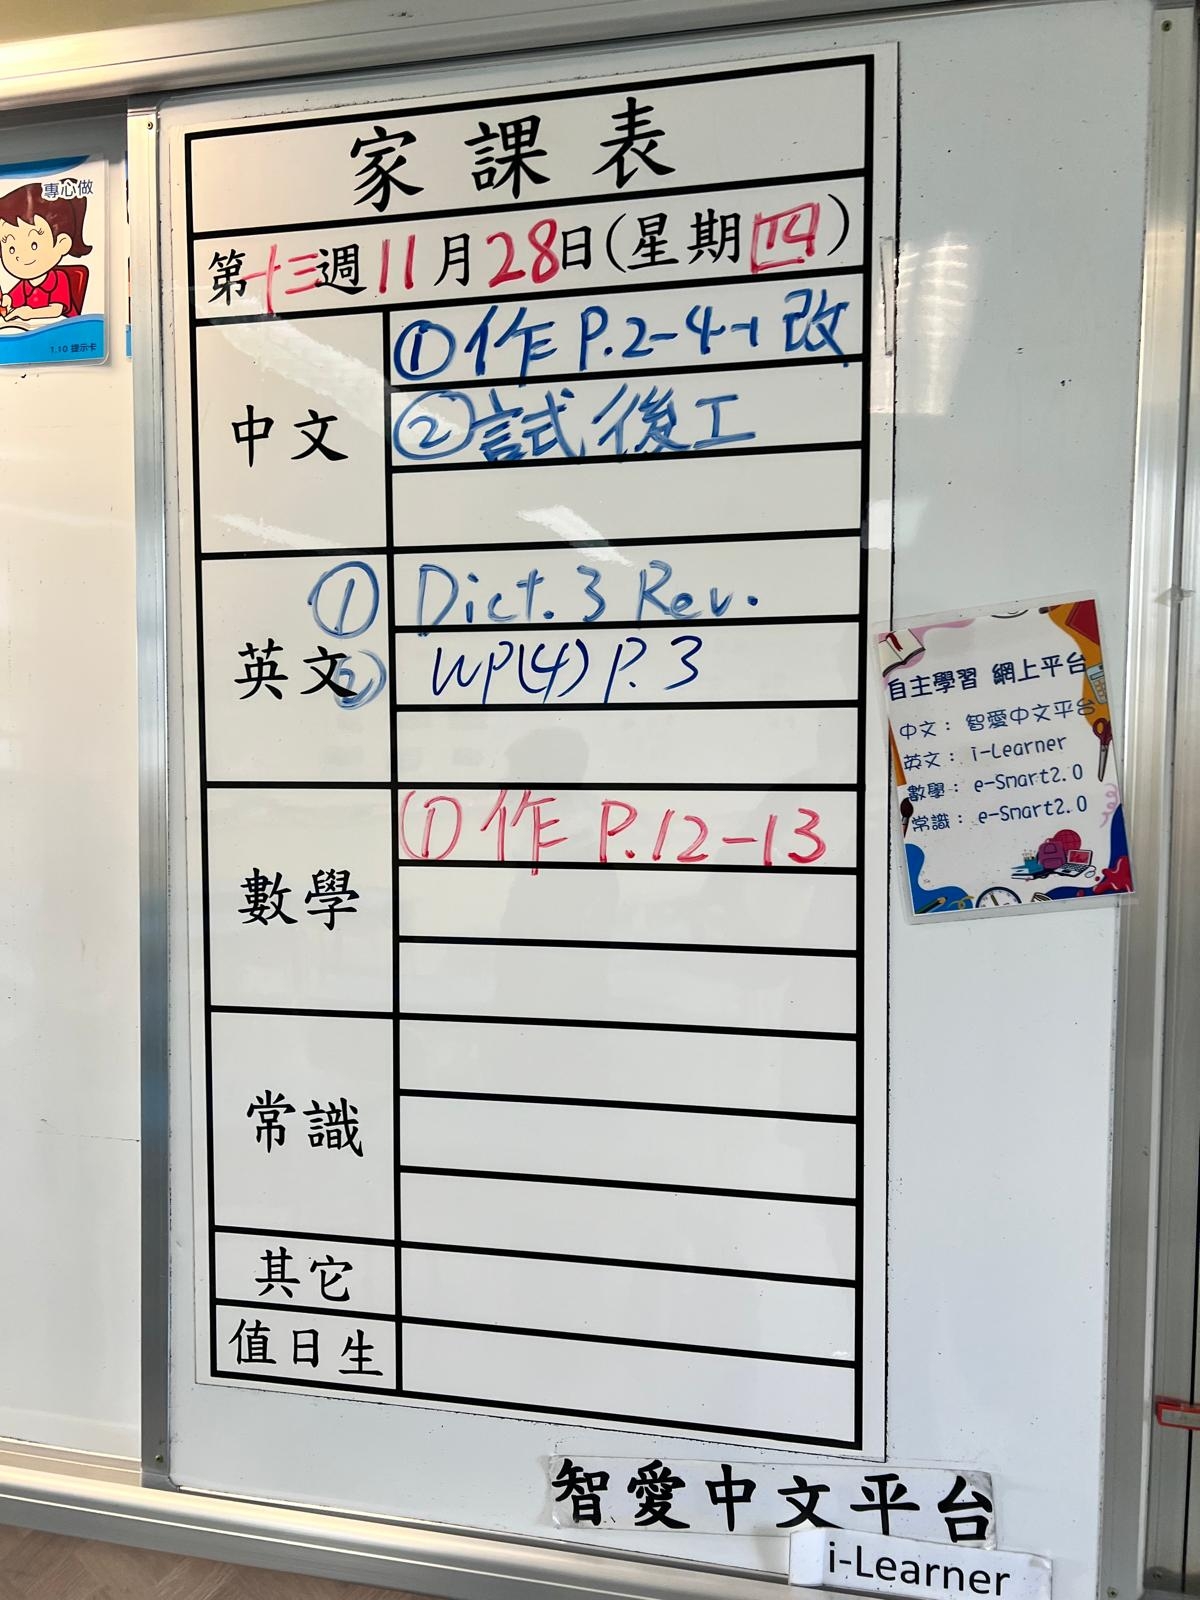 專心做
1.10 提示卡
家課表
第十三週11月28日(星期四)
中文
①作 P.2-4-1 改
②試後工
英文
① Dict. 3 Rev.
② WP(4) P. 3
數學
① 作 P.12-13
常識
其它
值日生
自主學習 網上平台
中文：智愛中文平台
英文：i-Learner
數學：e-Smart2.0
常識：e-Smart2.0
智愛中文平台
i-Learner